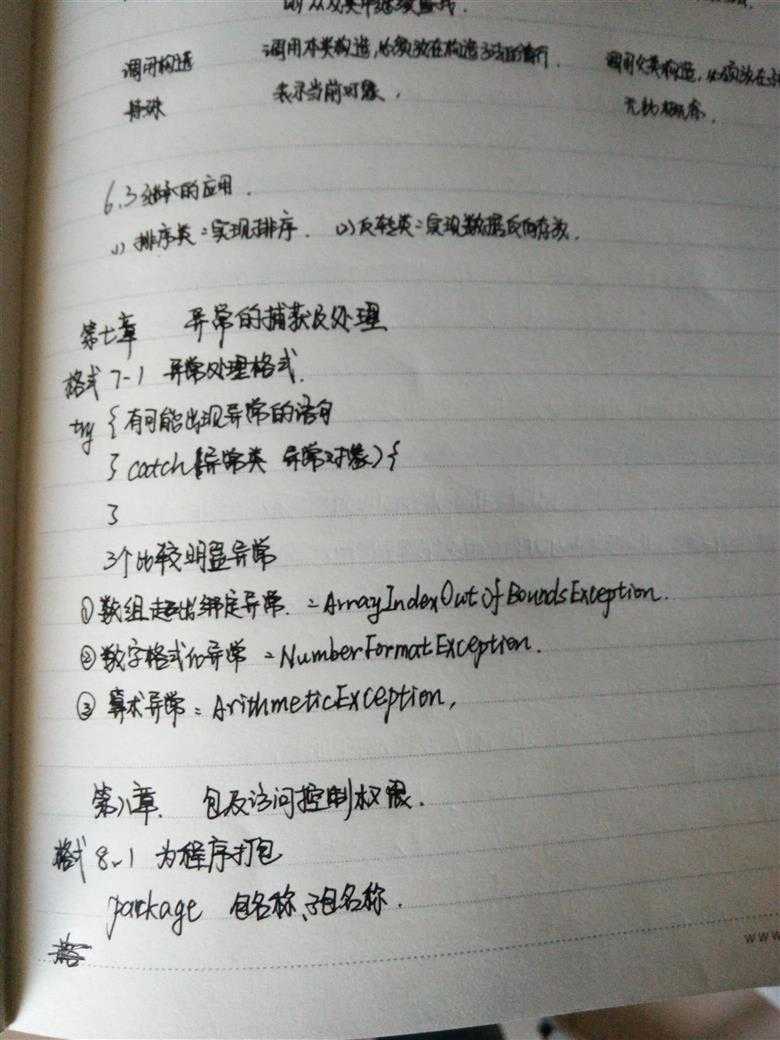 从父类中继续查找.
调用构造 调用本类构造,必须放在构造方法的首行. 调用父类构造,必须放在
特殊 表示当前对象. 无此概念.
6.3 继承的应用.
(1) 排序类:实现排序. (2) 反转类:实现数据反向存放.
第七章 异常的捕获及处理
格式 7-1 异常处理格式.
try { 有可能出现异常的语句
} catch (异常类 异常对象) {
}
3个比较明显异常
① 数组超出绑定异常. = ArrayIndexOutOfBoundsException.
② 数字格式化异常 = NumberFormatException.
③ 算术异常 = ArithmeticException,
第八章. 包及访问控制权限.
格式 8-1 为程序打包
package 包名称、子包名称.
www